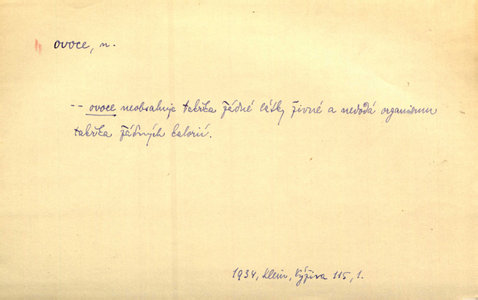 ovoce, n.
-- ovoce neobsahuje takřka žádné látky živné a nedodá organismu
takřka žádných kalorií.
1934, Klein, Výživa 115, 1.